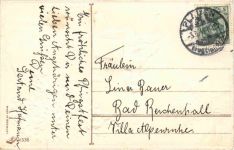 Ein fröhliches Pfingstfest
wünscht Dir und Deinen
lieben Angehörigen unter
vielen Grüßen
Deine
Gertrud
Fräulein
Lina Bauer
Bad Reichenhall
Villa Alpenruhe